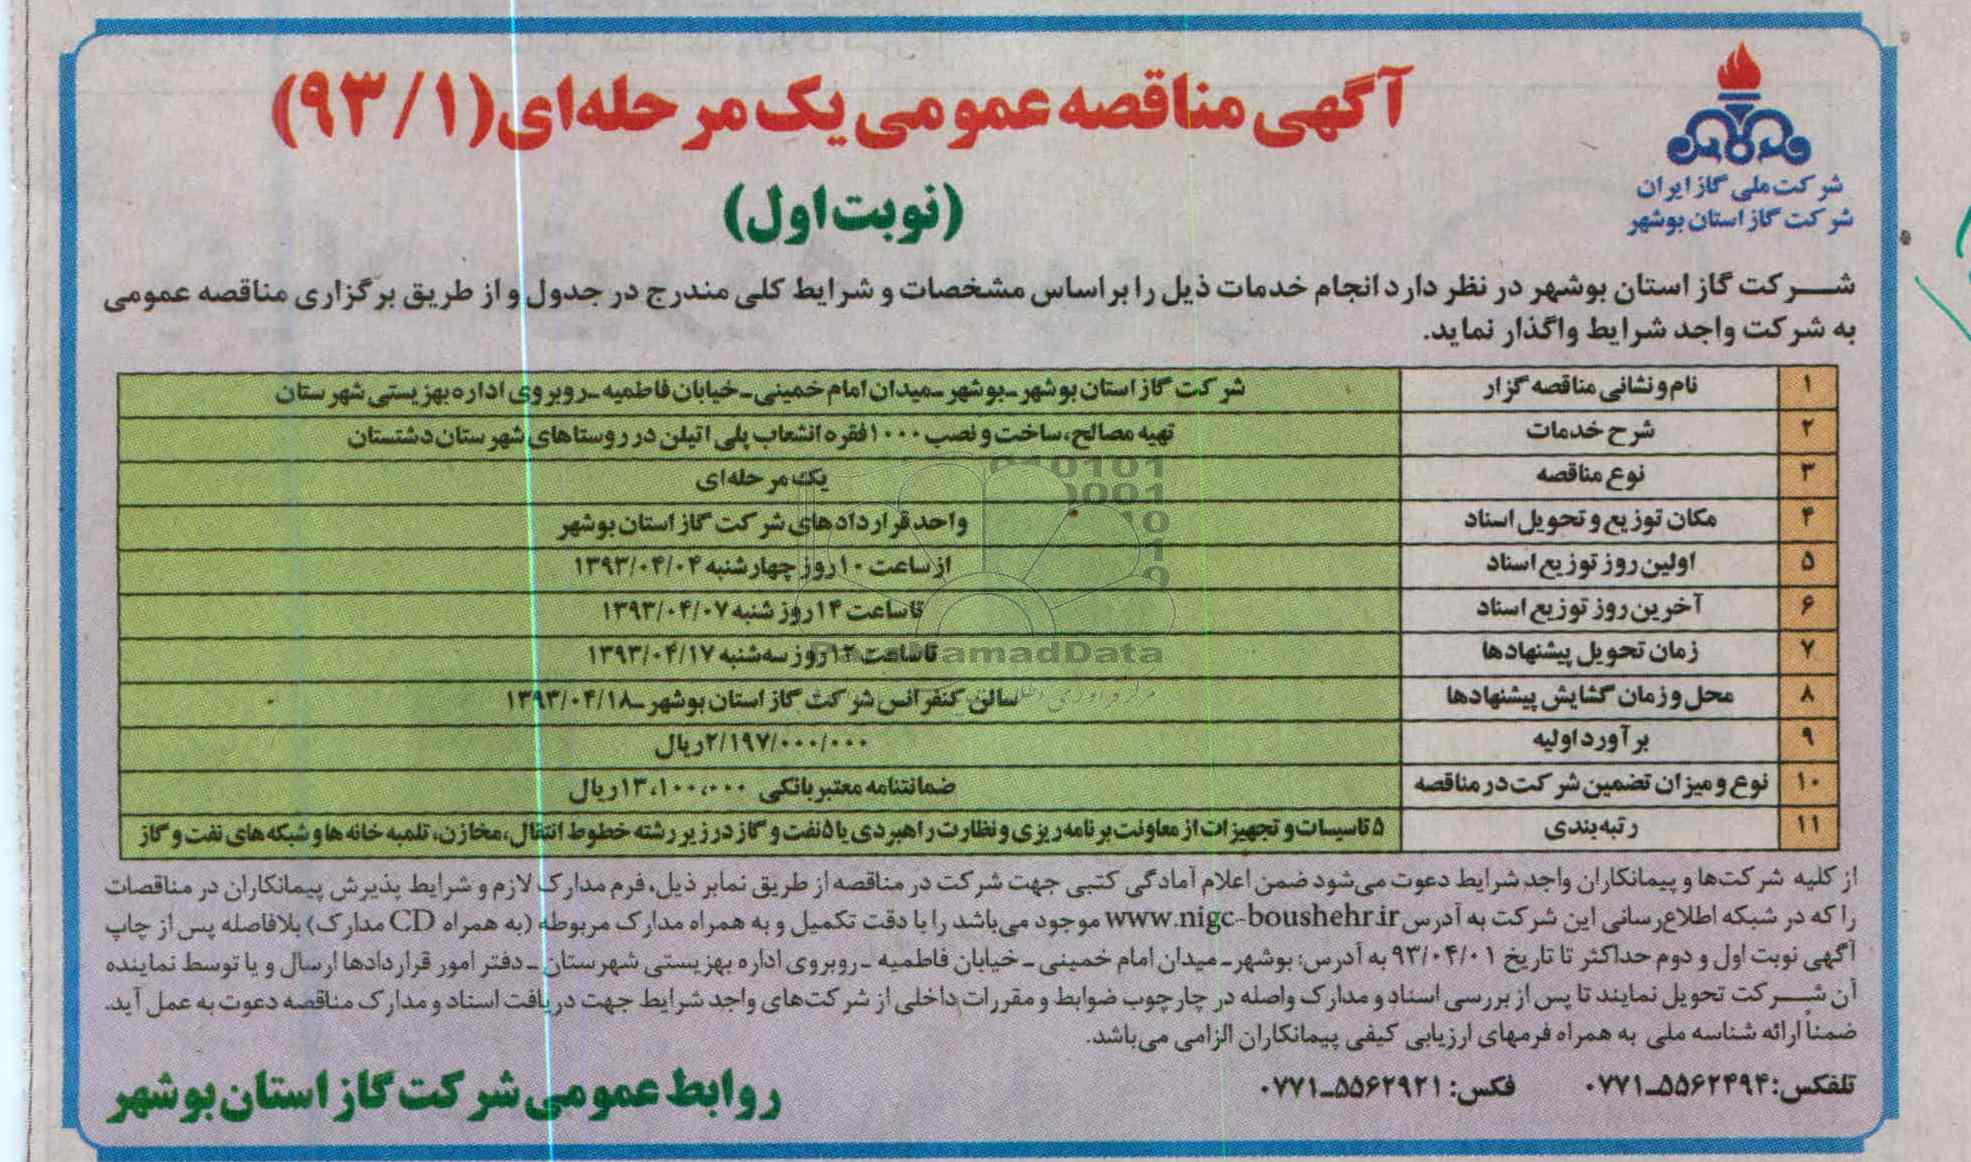 آگهی مناقصه عمومی یک مرحله‌ای (۹۳/۱)
(نوبت اول)
شرکت ملی گاز ایران
شرکت گاز استان بوشهر
شرکت گاز استان بوشهر در نظر دارد انجام خدمات ذیل را براساس مشخصات و شرایط کلی مندرج در جدول و از طریق برگزاری مناقصه عمومی
به شرکت واجد شرایط واگذار نماید.
۱ نام و نشانی مناقصه گزار شرکت گاز استان بوشهر ـ بوشهر ـ میدان امام خمینی ـ خیابان فاطمیه ـ روبروی اداره بهزیستی شهرستان
۲ شرح خدمات تهیه مصالح، ساخت و نصب ۱۰۰۰ فقره انشعاب پلی اتیلن در روستاهای شهرستان دشتستان
۳ نوع مناقصه یک مرحله‌ای
۴ مکان توزیع و تحویل اسناد واحد قراردادهای شرکت گاز استان بوشهر
۵ اولین روز توزیع اسناد از ساعت ۱۰ روز چهارشنبه ۱۳۹۳/۰۴/۰۴
۶ آخرین روز توزیع اسناد تا ساعت ۱۴ روز شنبه ۱۳۹۳/۰۴/۰۷
۷ زمان تحویل پیشنهادها تا ساعت ۱۲ روز سه‌شنبه ۱۳۹۳/۰۴/۱۷
۸ محل و زمان گشایش پیشنهادها سالن کنفرانس شرکت گاز استان بوشهر ـ ۱۳۹۳/۰۴/۱۸
۹ برآورد اولیه ۲/۱۹۷/۰۰۰/۰۰۰ ریال
۱۰ نوع و میزان تضمین شرکت در مناقصه ضمانتنامه معتبر بانکی ۱۳،۱۰۰،۰۰۰ ریال
۱۱ رتبه‌بندی ۵ تاسیسات و تجهیزات از معاونت برنامه‌ریزی و نظارت راهبردی یا ۵ نفت و گاز در زیر رشته خطوط انتقال، مخازن، تلمبه خانه ها و شبکه های نفت و گاز
ParsNamadData
از کلیه شرکت‌ها و پیمانکاران واجد شرایط دعوت می‌شود ضمن اعلام آمادگی کتبی جهت شرکت در مناقصه از طریق نمابر ذیل، فرم مدارک لازم و شرایط پذیرش پیمانکاران در مناقصات
را که در شبکه اطلاع‌رسانی این شرکت به آدرس www.nigc-boushehr.ir موجود می‌باشد را با دقت تکمیل و به همراه مدارک مربوطه (به همراه CD مدارک) بلافاصله پس از چاپ
آگهی نوبت اول و دوم حداکثر تا تاریخ ۹۳/۰۴/۰۱ به آدرس: بوشهر ـ میدان امام خمینی ـ خیابان فاطمیه ـ روبروی اداره بهزیستی شهرستان ـ دفتر امور قراردادها ارسال و یا توسط نماینده
آن شرکت تحویل نمایند تا پس از بررسی اسناد و مدارک واصله در چارچوب ضوابط و مقررات داخلی از شرکت‌های واجد شرایط جهت دریافت اسناد و مدارک مناقصه دعوت به عمل آید.
ضمناً ارائه شناسه ملی به همراه فرمهای ارزیابی کیفی پیمانکاران الزامی می‌باشد.
تلفکس: ۵۵۶۲۴۹۴ـ۰۷۷۱ فکس: ۵۵۶۲۹۲۱ـ۰۷۷۱
روابط عمومی شرکت گاز استان بوشهر